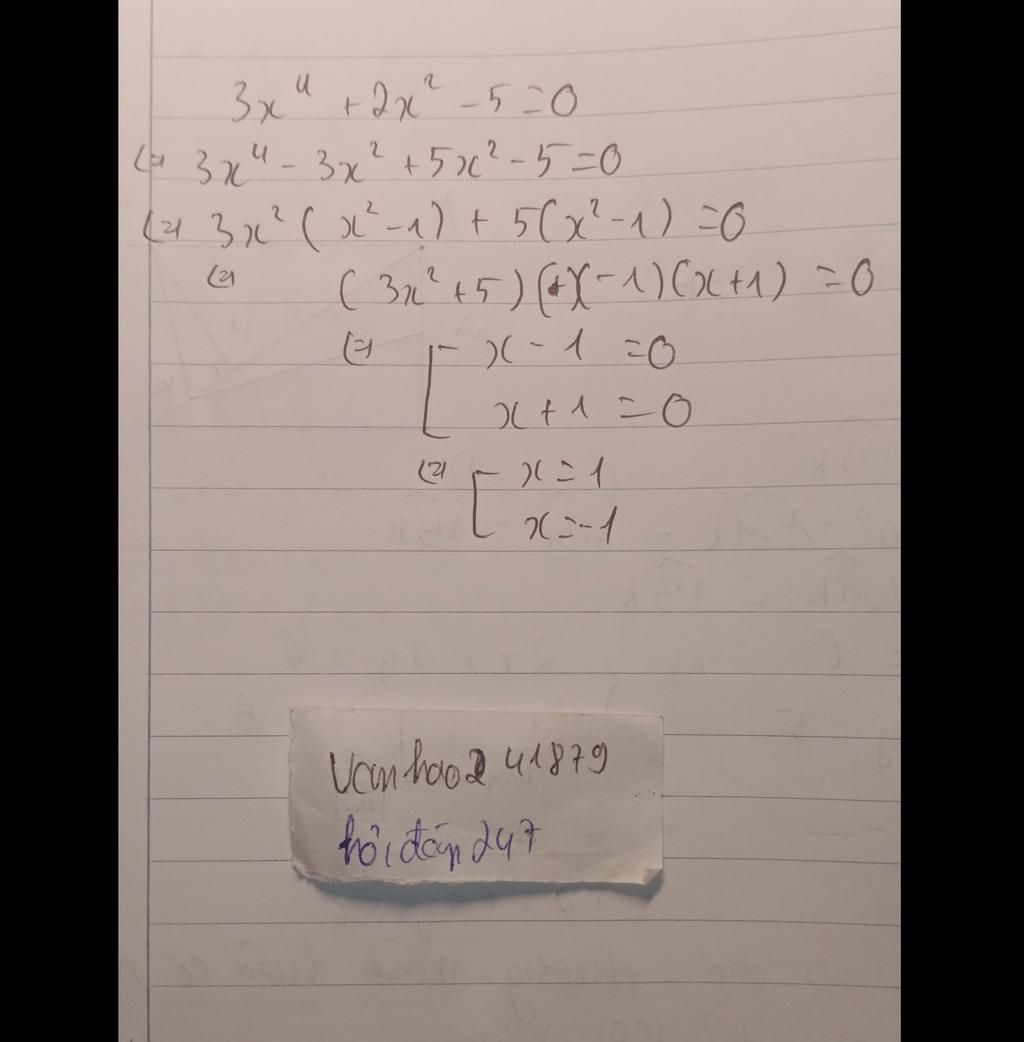 3x⁴ + 2x² - 5 = 0
⇔ 3x⁴ - 3x² + 5x² - 5 = 0
⇔ 3x² (x² - 1) + 5(x² - 1) = 0
⇔ (3x² + 5)(x - 1)(x + 1) = 0
⇔ [ x - 1 = 0
x + 1 = 0
⇔ [ x = 1
x = -1
vanhao241879
hỏi đáp 247